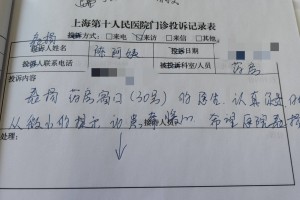 上海第十人民医院门诊投诉记录表
表扬
投诉方式: □来电 □来访 □来信 □其它
投诉人姓名 陈阿姨 投诉日期
投诉人联系电话 被投诉科室/人员 药房
投诉内容
表扬 药房窗口(30号) 的医生, 认真负责
从微小的提示, 希望医院表扬
处理: